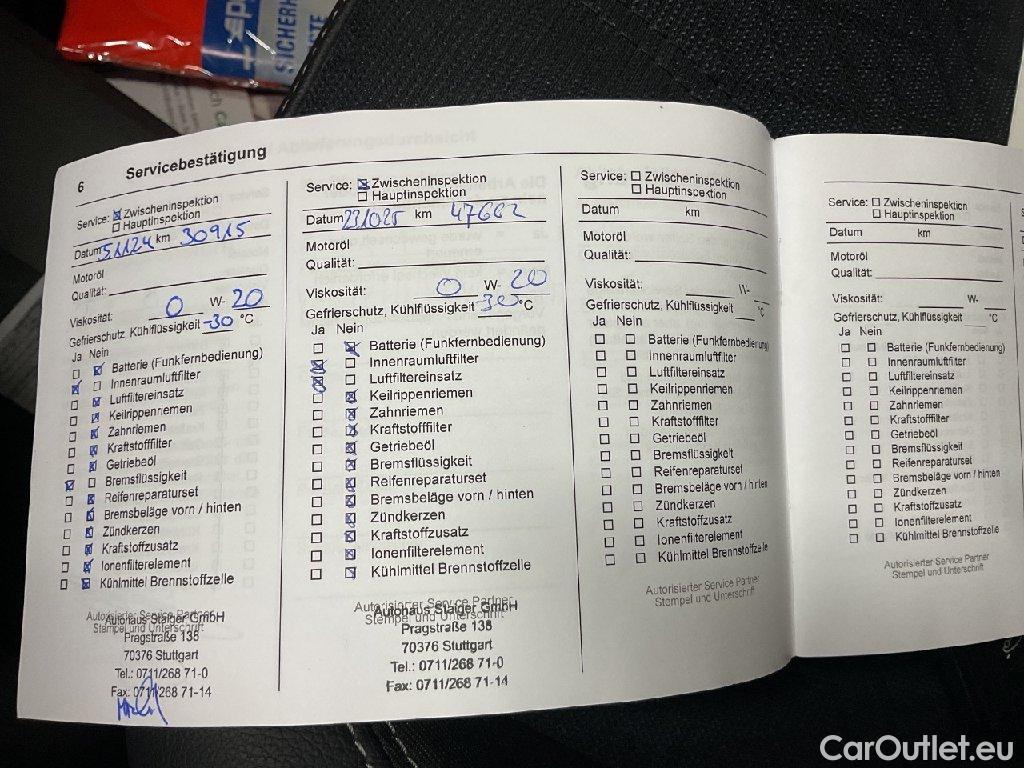 SICHERH
6 Servicebestätigung
Service: Zwischeninspektion
Hauptinspektion
Datum 5.11.24 km 30915
Motoröl
Qualität:
Viskosität: 0 W- 20
Gefrierschutz, Kühlflüssigkeit -30 °C
Ja Nein
Batterie (Funkfernbedienung)
Innenraumluftfilter
Luftfiltereinsatz
Keilrippenriemen
Zahnriemen
Kraftstofffilter
Getriebeöl
Bremsflüssigkeit
Reifenreparaturset
Bremsbeläge vorn / hinten
Zündkerzen
Kraftstoffzusatz
Ionenfilterelement
Kühlmittel Brennstoffzelle
Autorisierter Service Partner
Stempel und Unterschrift
Autohaus Staiger GmbH
Pragstraße 138
70376 Stuttgart
Tel.: 0711/268 71-0
Fax: 0711/268 71-14
Service: Zwischeninspektion
Hauptinspektion
Datum 23.10.25 km 47662
Motoröl
Qualität:
Viskosität: 0 W- 20
Gefrierschutz, Kühlflüssigkeit -30 °C
Ja Nein
Batterie (Funkfernbedienung)
Innenraumluftfilter
Luftfiltereinsatz
Keilrippenriemen
Zahnriemen
Kraftstofffilter
Getriebeöl
Bremsflüssigkeit
Reifenreparaturset
Bremsbeläge vorn / hinten
Zündkerzen
Kraftstoffzusatz
Ionenfilterelement
Kühlmittel Brennstoffzelle
Autorisierter Service Partner
Stempel und Unterschrift
Autohaus Staiger GmbH
Pragstraße 138
70376 Stuttgart
Tel.: 0711/268 71-0
Fax: 0711/268 71-14
Service: Zwischeninspektion
Hauptinspektion
Datum km
Motoröl
Qualität:
Viskosität: W-
Gefrierschutz, Kühlflüssigkeit °C
Ja Nein
Batterie (Funkfernbedienung)
Innenraumluftfilter
Luftfiltereinsatz
Keilrippenriemen
Zahnriemen
Kraftstofffilter
Getriebeöl
Bremsflüssigkeit
Reifenreparaturset
Bremsbeläge vorn / hinten
Zündkerzen
Kraftstoffzusatz
Ionenfilterelement
Kühlmittel Brennstoffzelle
Autorisierter Service Partner
Stempel und Unterschrift
Service: Zwischeninspektion
Hauptinspektion
Datum km
Motoröl
Qualität:
Viskosität: W-
Gefrierschutz, Kühlflüssigkeit °C
Ja Nein
Batterie (Funkfernbedienung)
Innenraumluftfilter
Luftfiltereinsatz
Keilrippenriemen
Zahnriemen
Kraftstofffilter
Getriebeöl
Bremsflüssigkeit
Reifenreparaturset
Bremsbeläge vorn / hinten
Zündkerzen
Kraftstoffzusatz
Ionenfilterelement
Kühlmittel Brennstoffzelle
Autorisierter Service Partner
Stempel und Unterschrift
CarOutlet.eu